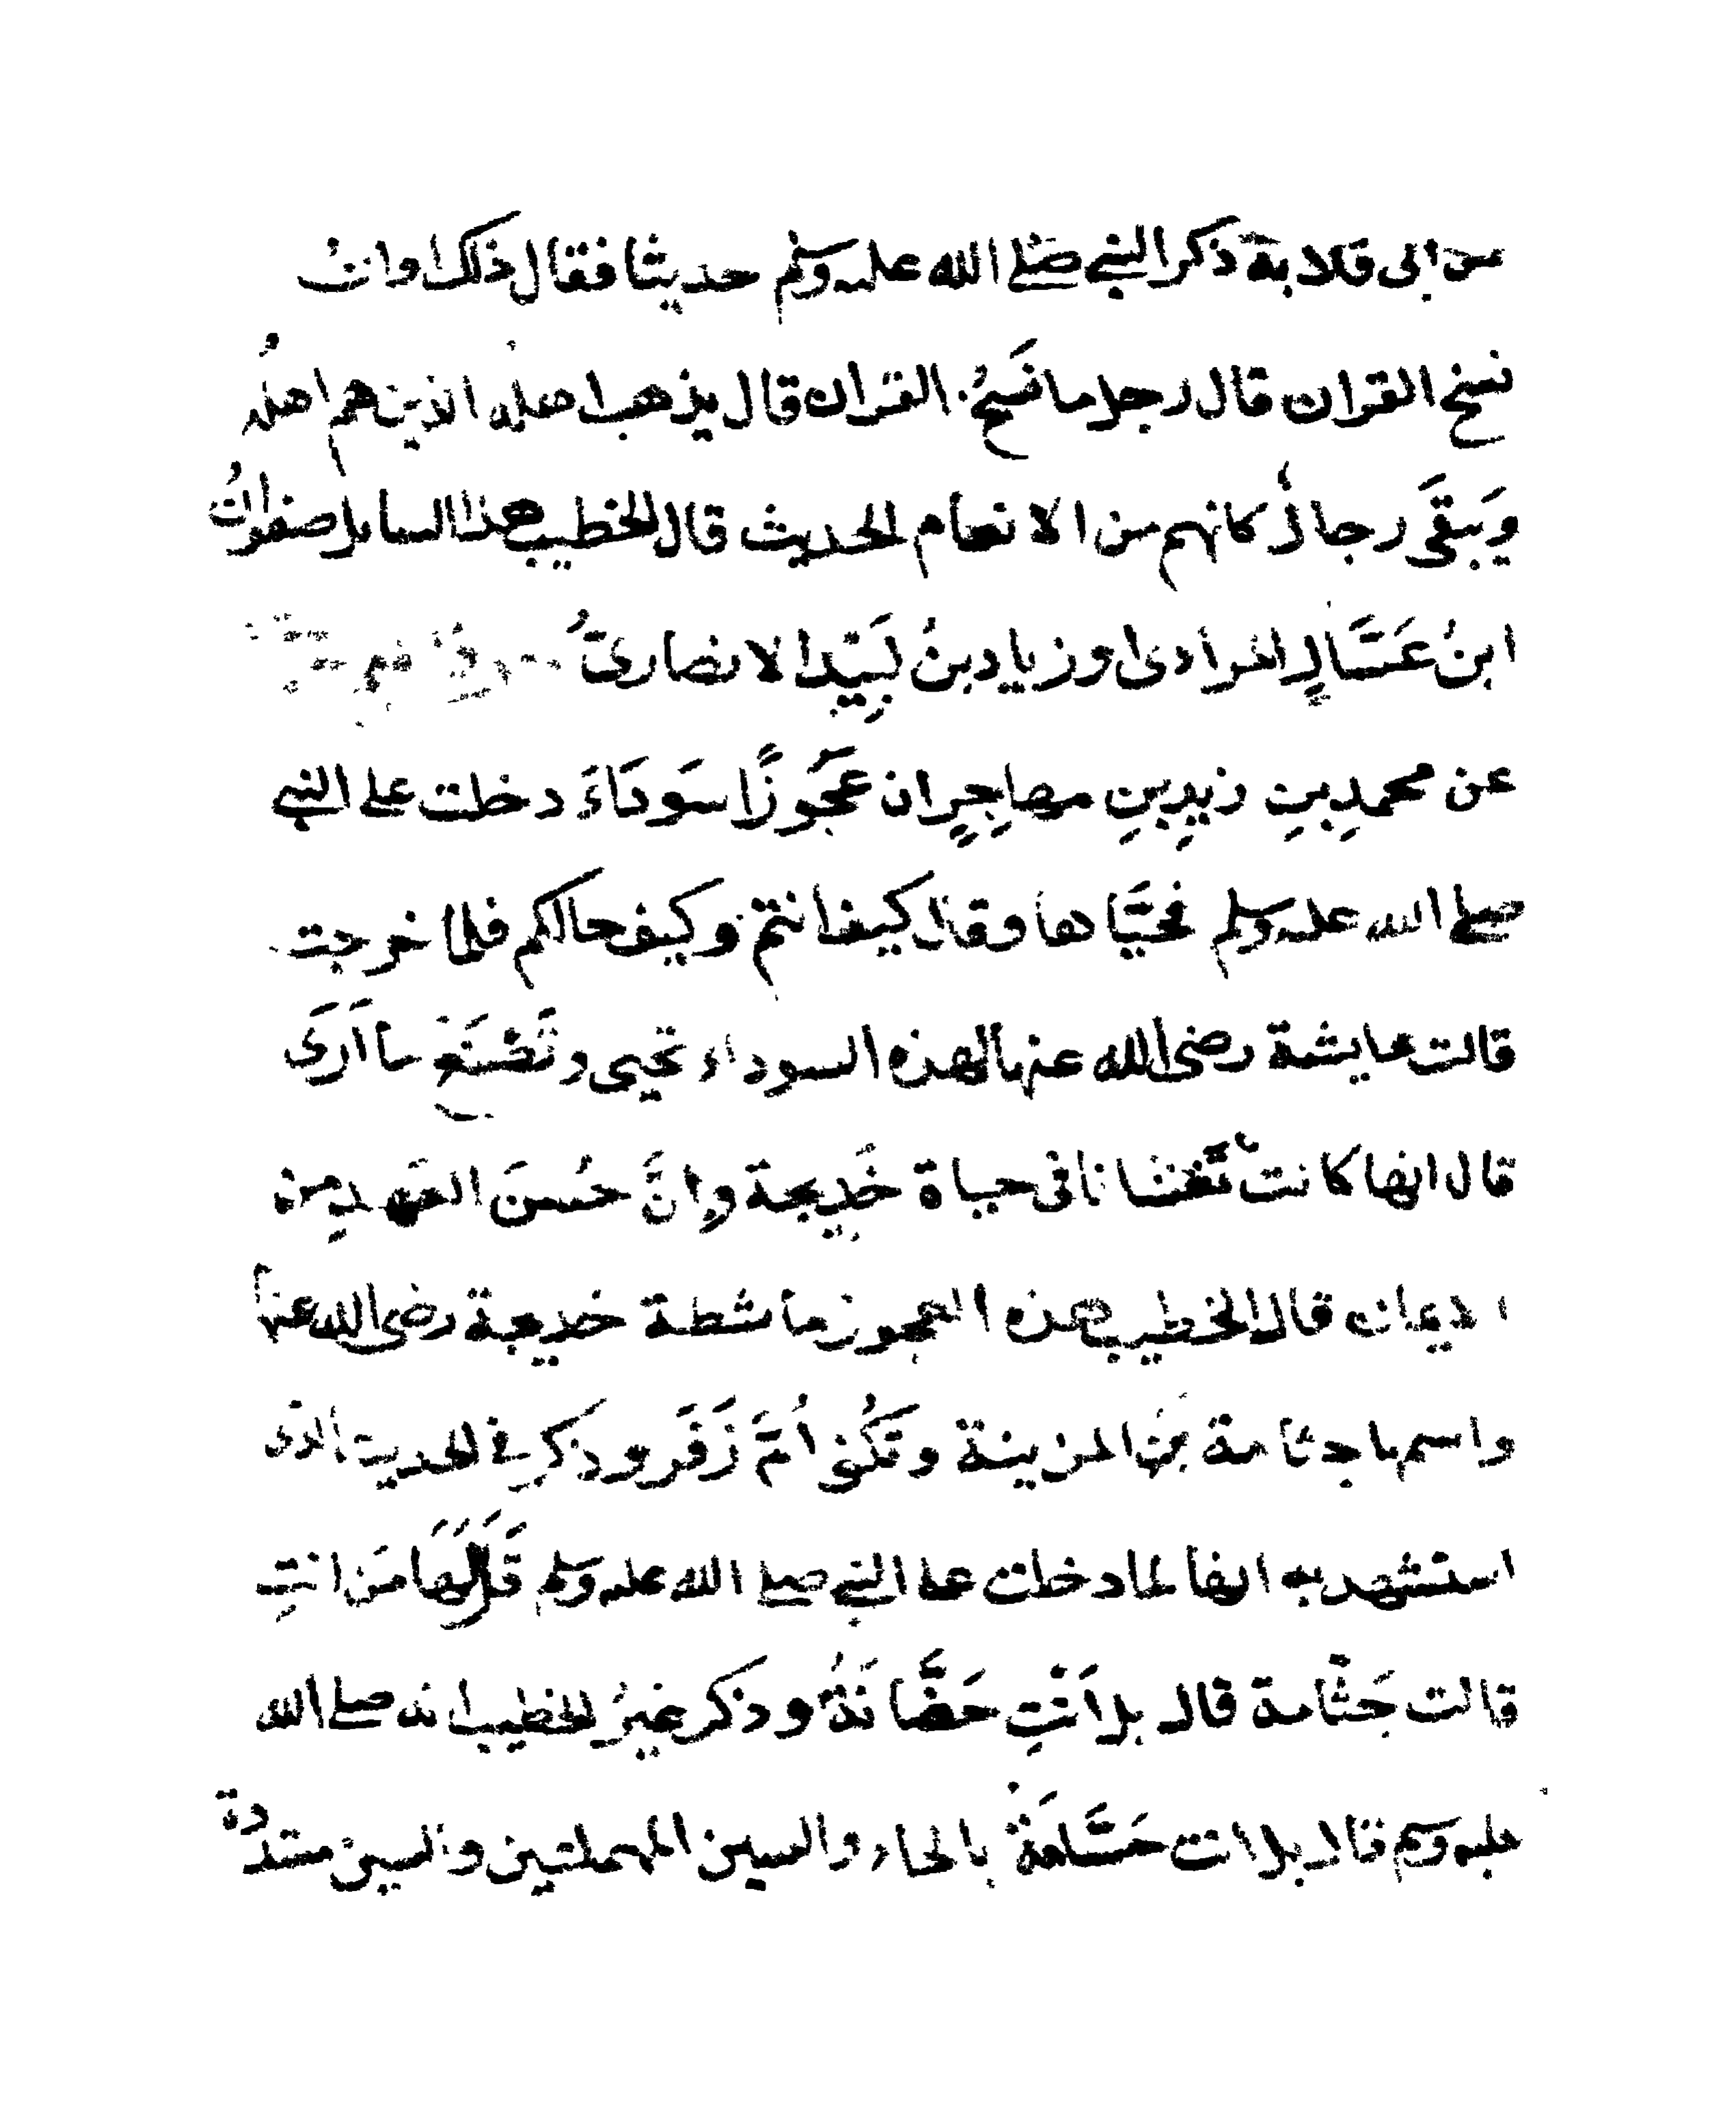 عن ابى قلابة ذكر النبي صلى الله عليه وسلم حديثا فقال ذلك اوان
نسخ القران قال رجل ما نسخُ القران قال يذهب اهله الذين هم اهلُه
وَيبقَى رجالٌ كانهم من الانعام الحديث قال الخطيب هذا السايل صفوانُ
ابنُ عَسَّالٍ المرادى او زياد بنُ لَبِيْد الانصارىُّ
عن محمدِ بنِ زيدِ بنِ مهاجِرٍ ان عَجُوزًا سَودَاءَ دخلت على النبي
صلى الله عليه وسلم فحيَّاها وقال كيف انتم وكيف حالكم فلما خرجت
قالت عايشة رضى الله عنها لهذه السوداء تحيى وتَصْنَعُ ما اَرَى
قال انها كانتْ تَغشانا فى حياة خَدِيجة وإنَّ حُسنَ العَهدِ من
الايمان قال الخطيب هذه العجوز ماشطة خديجة رضى الله عنها
واسمها جثامة المزينة وتُكَنى اُمَّ زُفَر وذكر في الحديث الذى
استشهد به انها لما دخلت على النبي صلى الله عليه وسلم قَالَ لَهَا مَن انتِ
قالت جَثَّامة قال بل اَنْتِ حَضَّانَةُ وذكر غيرُ الخطيب انه صلى الله
عليه وسلم قال بل انت حَسَّانَةُ بالحاء والسين المهملتين والسين مشدّدة